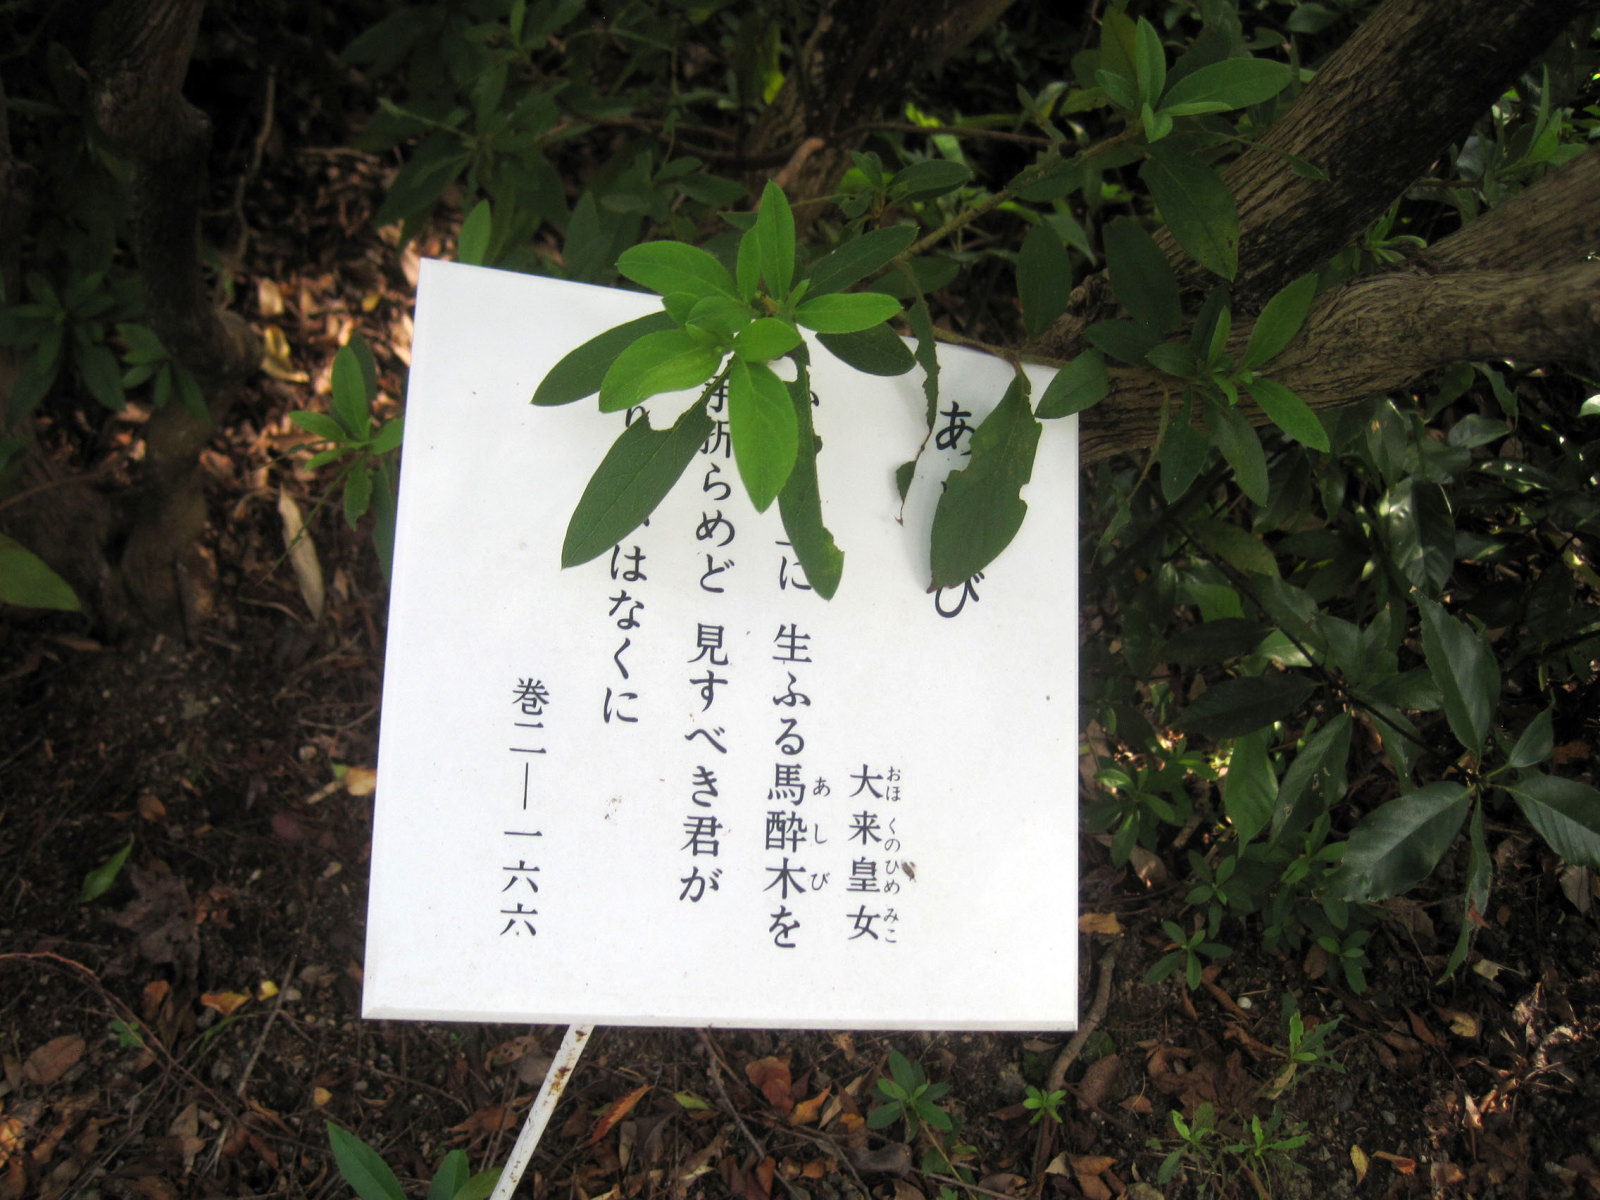 あ び
大来皇女
おほくのひめみこ
に 生ふる馬酔木を
あしび
手折らめど 見すべき君が
はなくに
巻二―一六六